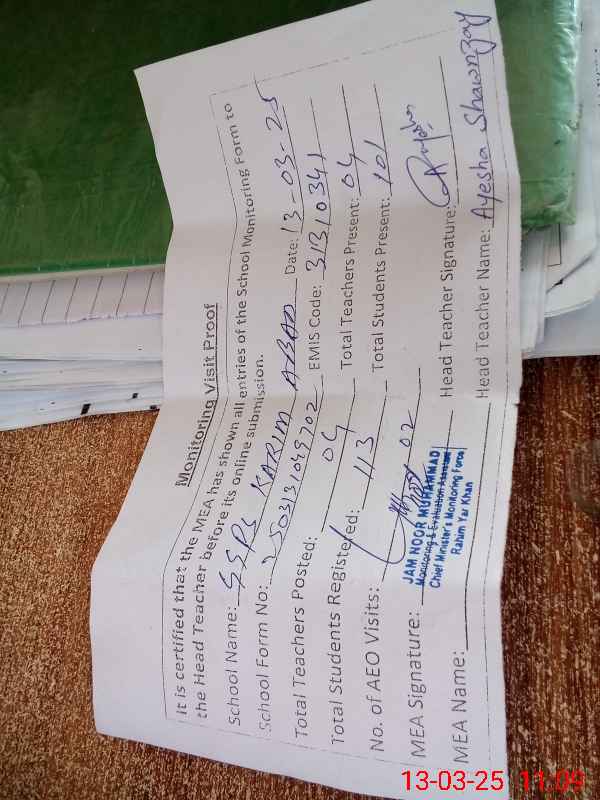 Monitoring Visit Proof
It is certified that the MEA has shown all entries of the School Monitoring Form to
the Head Teacher before its online submission.
School Name: GGPS KARIM ABAD Date: 13-03-25
School Form No: 2503131049702 EMIS Code: 31310341
Total Teachers Posted: 04 Total Teachers Present: 04
Total Students Registered: 113 Total Students Present: 101
No. of AEO Visits: 02
MEA Signature: Head Teacher Signature:
JAM NOOR MUHAMMAD
Monitoring & Evaluation Assistant
Chief Minister's Monitoring Force
Rahim Yar Khan
MEA Name: Head Teacher Name: Ayesha Shawnzay
13-03-25 11:09